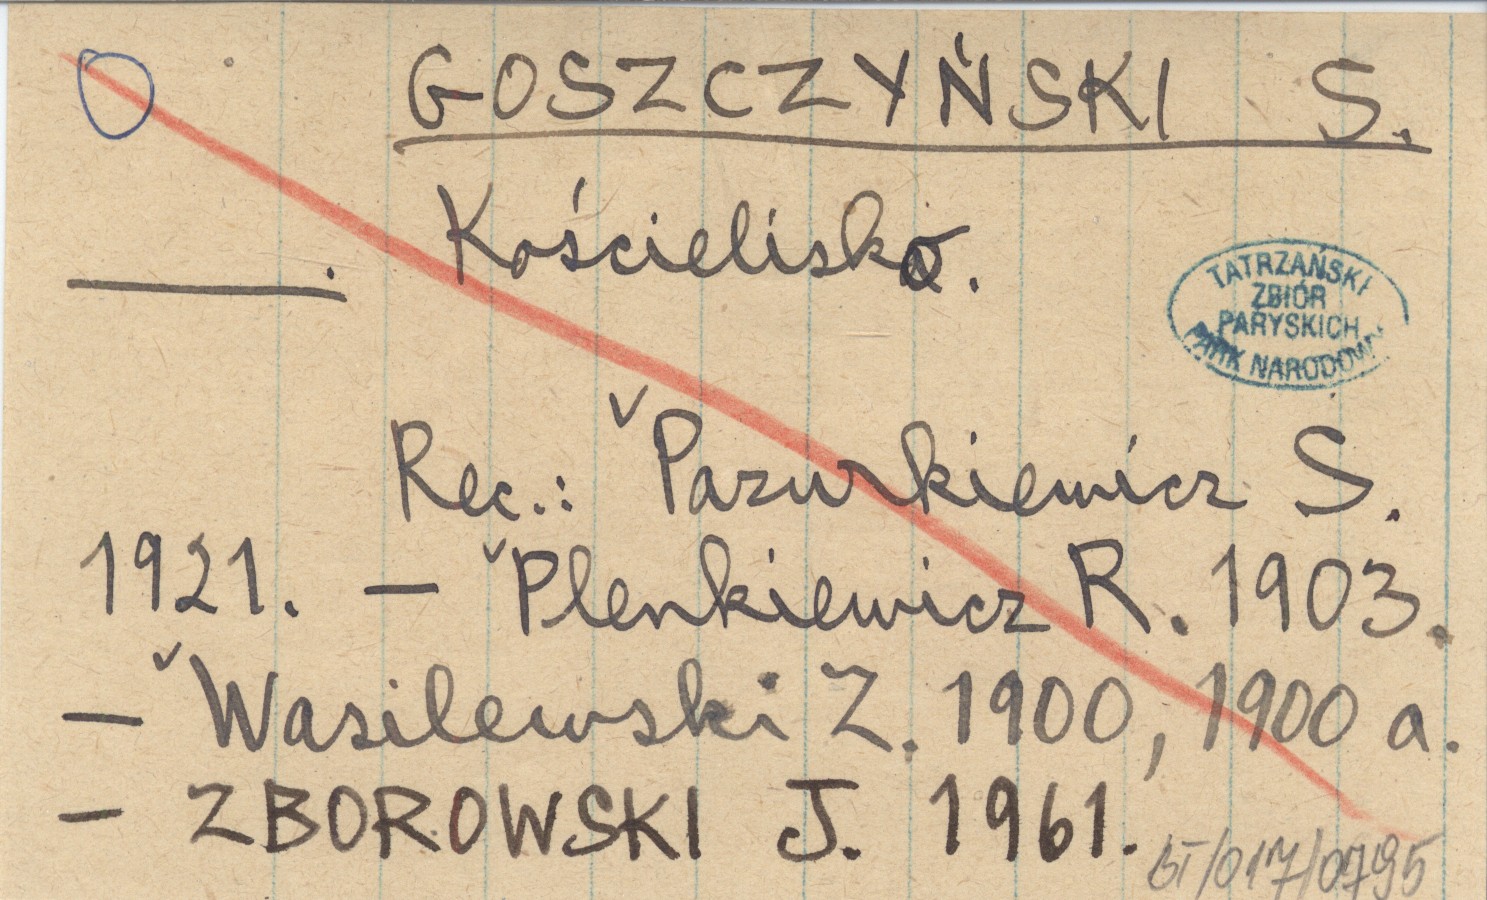 GOSZCZYŃSKI S.
Kościelisko.
TATRZAŃSKI
ZBIÓR
PARYSKICH
PARK NARODOWY
Rec.: ˇPazurkiewicz S.
1921. – ˇPlenkiewicz R. 1903.
– ˇWasilewski Z. 1900, 1900 a.
– ZBOROWSKI J. 1961.
BT/017/0795